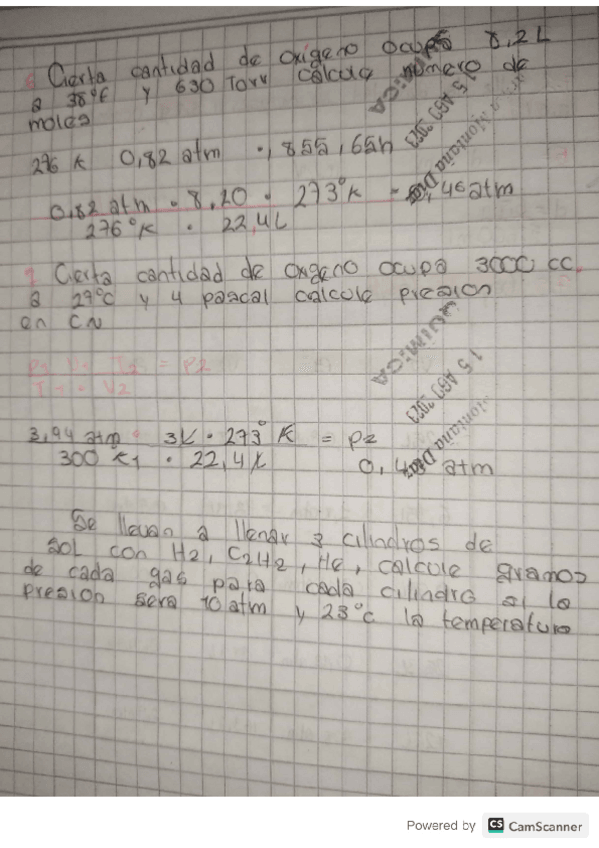 Cierta cantidad de oxigeno ocupa 8,2L
a 38°F y 630 Torr calcula numero de
moles
276 K 0,82 atm
0,82 atm • 8,20 • 273°K
276°K • 22,4L
15 AGO 2023
9 Cierta cantidad de oxigeno ocupa 3000 cc.
a 27°C y 4 pascal calcule presion
en CN
= P2
T1 • V2
QUIMICA
15 AGO 2023
3,94 atm • 3L • 273°K = P2
300 K • 22,4L 0,480 atm
Se llevan a llenar 3 cilindros de
20L con H2, C2H2, He, calcule gramos
de cada gas para cada cilindro si la
presion sera 10 atm y 23°c la temperatura
Powered by CS CamScanner